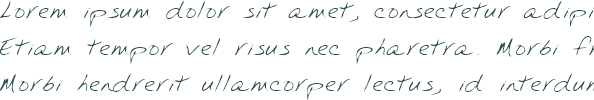 Lorem ipsum dolor sit amet, consectetur adipi
Etiam tempor vel risus nec pharetra. Morbi fr
Morbi hendrerit ullamcorper lectus, id interdum